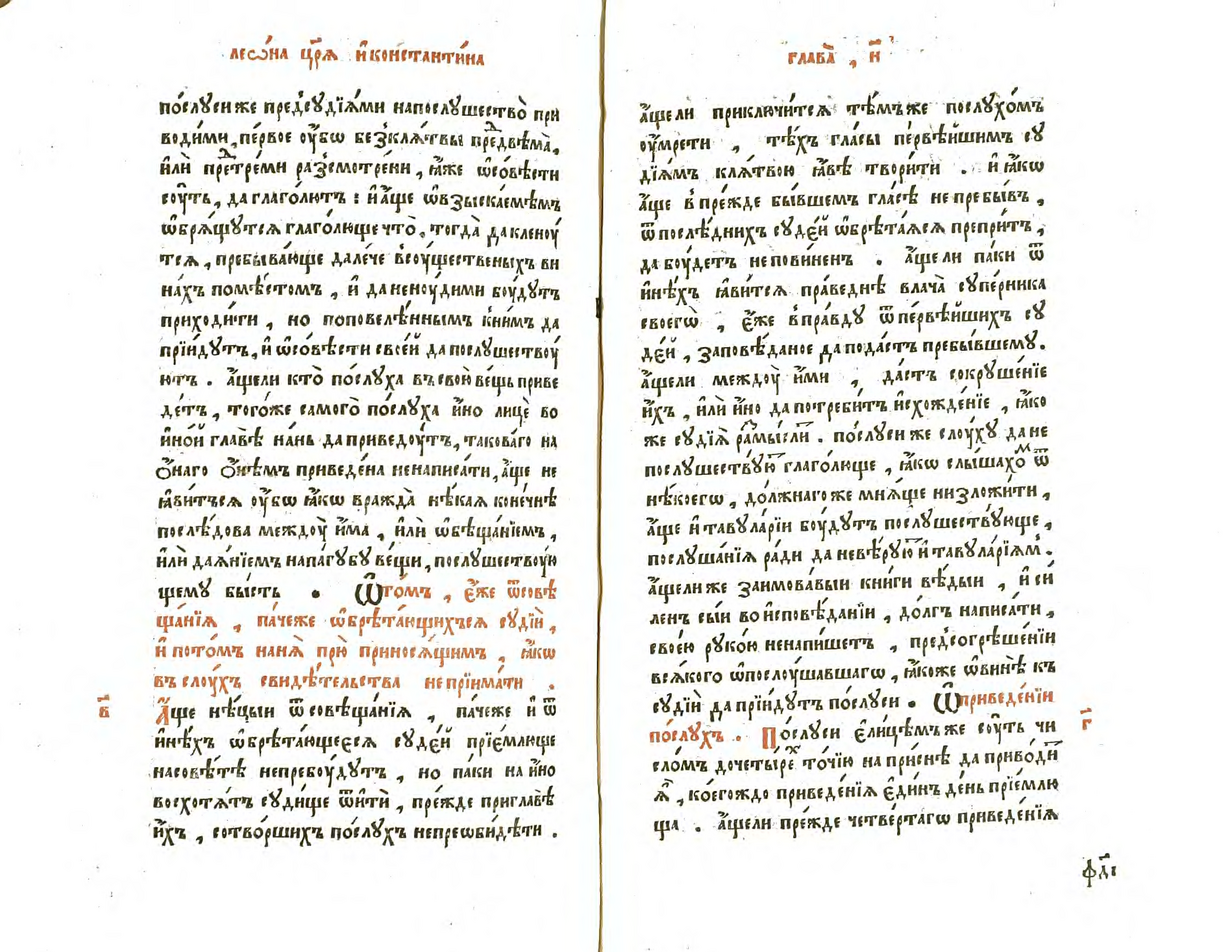 леѡ́на цр҃ѧ и҆ константи́на
по́слꙋси же пред̾сꙋдїѧ́ми напослꙋ́шество̀ при
води́ми, пе́рвое ᲂу҆́бѡ без̾клѧ́твы пред̾двѣма̀,
и҆лѝ претреми раз̾смотре́ни, ꙗ҆́же ѿсо́вѣсти
сᲂу́ть, да глаго́лютъ : и҆ а҆́ще ѡ҆взыска́емѣмъ
ѡ҆брѧ́щꙋтсѧ глаго́люще что̀, тогда̀ да кленᲂу́
тсѧ, пребыва́юще дале́че всᲂу́щественыхъ ви
на́хъ помѣ́стомъ, и҆ да ненᲂу́дими бᲂу́дꙋтъ
приходи́ти, но поповелѣ́ннымъ кни́мъ да
прїи́дꙋтъ, и҆ ѿсо́вѣсти свое́й да послꙋ́шествᲂу́
ютъ . а҆́щели кто̀ по́слꙋха въ свою̀ ве́щь приве
де́тъ, того́же самого̀ по́слꙋха и҆́но лицѐ во
и҆но́й главѣ̀ на́нь да приведᲂу́тъ, такова́го на
ѻ҆́наго ѻ҆ не́мъ приведе́на ненаписа́ти, а҆́ще не
ꙗ҆ви́тъсѧ ᲂу҆́бѡ ꙗ҆́кѡ вражда̀ нѣ́каѧ коне́чнѣ
послѣ́дова междᲂу̀ и҆́ма, и҆лѝ ѡ҆бѣща́нїемъ,
и҆лѝ даѧ́нїемъ напа́гꙋбꙋ ве́щи, послꙋ́шествᲂу́ю
щемꙋ бы́сть . Ѡ҆ то́мъ, є҆́же ѿсовѣ
ща́нїѧ, па́чеже ѡ҆брѣта́ющихъсѧ сꙋді́й,
и҆ пото́мъ нанѧ̀ прю̀ приносѧ́щимъ, ꙗ҆́кѡ
въ слᲂу́хъ свидѣ́тельства не прїима́ти .
в҃
А҆́ще нѣ́цыи ѿсовѣща́нїѧ, па́чеже и҆ ѿ
и҆нѣ́хъ ѡ҆брѣта́ющеесѧ сꙋде́й прїе́млюще
насовѣ́тѣ непребᲂу́дꙋтъ, но па́ки на и҆́но
восхотѧ́тъ сꙋди́ще ѿи҆тѝ, пре́жде приглавѣ̀
и҆́хъ, сотво́ршихъ по́слꙋхъ непреѡби́дѣти .
глава̀, и҃
а҆́щели приключи́тсѧ тѣ́мъже послꙋхо́мъ
ᲂу҆мре́ти, тѣ́хъ гла́сы первѣ́йшимъ сꙋ
дїѧ́мъ клѧ́твою ꙗ҆́вѣ твори́ти . и҆ ꙗ҆́кѡ
а҆́ще в̾пре́жде бы́вшемъ гла́сѣ не пребы́въ,
ѿ послѣ́днихъ сꙋде́й ѡ҆брѣта́ѧсѧ препри́тъ,
да бᲂу́детъ непови́ненъ . а҆́щели па́ки ѿ
и҆нѣ́хъ ꙗ҆ви́тсѧ пра́веднѣ влача̀ сꙋпе́рника
своегѡ̀, є҆́же в̾пра́вдꙋ ѿпервѣ́йшихъ сꙋ
де́й, заповѣ́даное да пода́стъ пребы́вшемꙋ.
а҆́щели междᲂу̀ и҆́ми, да́стъ сокрꙋше́нїе
и҆́хъ, и҆лѝ и҆́но да потреби́тъ и҆схожде́нїе, ꙗ҆́ко
же сꙋдїѧ̀ ра́мысли . по́слꙋси же слᲂу́хꙋ да не
послꙋ́шествꙋю глаго́люще, ꙗ҆́кѡ слы́шахом ѿ
нѣ́коегѡ, до́лжнагоже мнѧ́ще низложи́ти,
а҆́ще и҆ тавꙋла́рїи бᲂу́дꙋтъ послꙋ́шествꙋюще,
послꙋша́нїѧ ра́ди да невѣ́рꙋю и҆ тавꙋла́рїѧм .
а҆́щели же заимова́выи кни́ги вѣ́дыи, и҆ си́
ленъ сы́и во и҆сповѣ́данїи, до́лгъ написа́ти,
свое́ю рꙋко́ю ненапи́шетъ, пред̾согрѣше́нїи
всѧ́кого ѡ҆послᲂу́шавшагѡ, ꙗ҆́коже ѡ҆винѣ̀ къ
сꙋді́й да прїи́дꙋтъ по́слꙋси . Ѡ҆ приведе́нїи
по́слꙋхъ . По́слꙋси є҆ли́цѣмъже сᲂу́ть чи
г҃
сло́мъ дочеты́рех то́чїю на при́снѣ да приво́дѧ
ѧ҆̀, коего́ждо приведе́нїѧ є҆ди́нъ де́нь прїе́млю
ща . а҆́щели пре́жде четве́ртагѡ приведе́нїѧ
ф҃ді